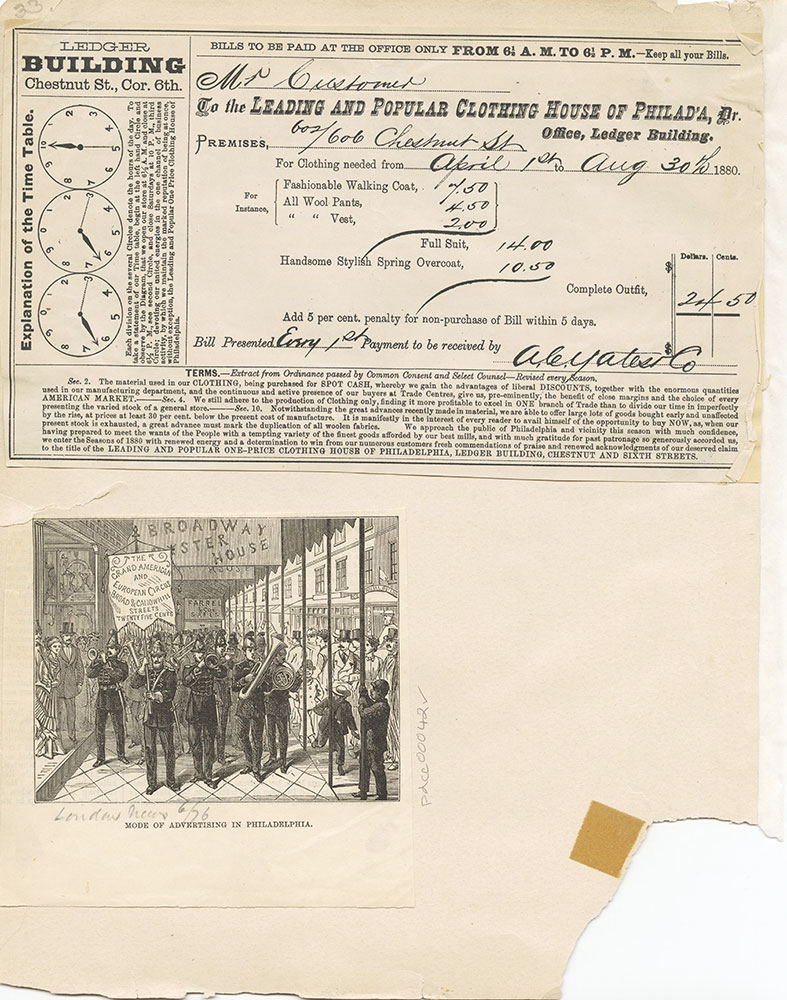 33
LEDGER
BUILDING
Chestnut St., Cor. 6th.
Explanation of the Time Table.
Each division on the several Circles denote the hours of the day. To
take a statement of our Time table, begin at the left hand Circle and
observe by the Diagram, that we open our store at 6½ A. M. and close at
6½ P. M., see second Circle, and close Saturdays at 10 P. M., third
Circle; devoting our united energies in the one channel of business
activity, by which we maintain the marked reputation of being at once,
without exception, the Leading and Popular One Price Clothing House of
Philadelphia.
BILLS TO BE PAID AT THE OFFICE ONLY FROM 6½ A. M. TO 6½ P. M.—Keep all your Bills.
Mr Customer
To the LEADING AND POPULAR CLOTHING HOUSE OF PHILAD'A, Dr.
Office, Ledger Building.
PREMISES, 602/606 Chestnut St
For Clothing needed from April 1st to Aug 30th 1880.
For Instance,
Fashionable Walking Coat, . 7.50
All Wool Pants, 4.50
" " Vest, 2.00
Full Suit, 14.00
Handsome Stylish Spring Overcoat, 10.50
Dollars. Cents.
Complete Outfit, $ 24 50
Add 5 per cent. penalty for non-purchase of Bill within 5 days.
Bill Presented Every 1st Payment to be received by $
A.C. Yates & Co
TERMS.—Extract from Ordinance passed by Common Consent and Select Counsel—Revised every Season.
Sec. 2. The material used in our CLOTHING, being purchased for SPOT CASH, whereby we gain the advantages of liberal DISCOUNTS, together with the enormous quantities
used in our manufacturing department, and the continuous and active presence of our buyers at Trade Centres, give us, pre-eminently, the benefit of close margins and the choice of every
AMERICAN MARKET.——Sec. 4. We still adhere to the production of Clothing only, finding it more profitable to excel in ONE branch of Trade than to divide our time in imperfectly
presenting the varied stock of a general store.——Sec. 10. Notwithstanding the great advances recently made in material, we are able to offer large lots of goods bought early and unaffected
by the rise, at prices at least 30 per cent. below the present cost of manufacture. It is manifestly in the interest of every reader to avail himself of the opportunity to buy NOW, as, when our
present stock is exhausted, a great advance must mark the duplication of all woolen fabrics. We approach the public of Philadelphia and vicinity this season with much confidence,
having prepared to meet the wants of the People with a tempting variety of the finest goods afforded by our best mills, and with much gratitude for past patronage so generously accorded us,
we enter the Seasons of 1880 with renewed energy and a determination to win from our numerous customers fresh commendations of praise and renewed acknowledgments of our deserved claim
to the title of the LEADING AND POPULAR ONE-PRICE CLOTHING HOUSE OF PHILADELPHIA, LEDGER BUILDING, CHESTNUT AND SIXTH STREETS.
BROADWAY
STER
HOUSE
THE
GRAND AMERICAN
AND
EUROPEAN CIRCUS
BROAD & CALLOWHILL
STREETS
TWENTY FIVE CENTS
London News 6/76
MODE OF ADVERTISING IN PHILADELPHIA.
pdcc00042